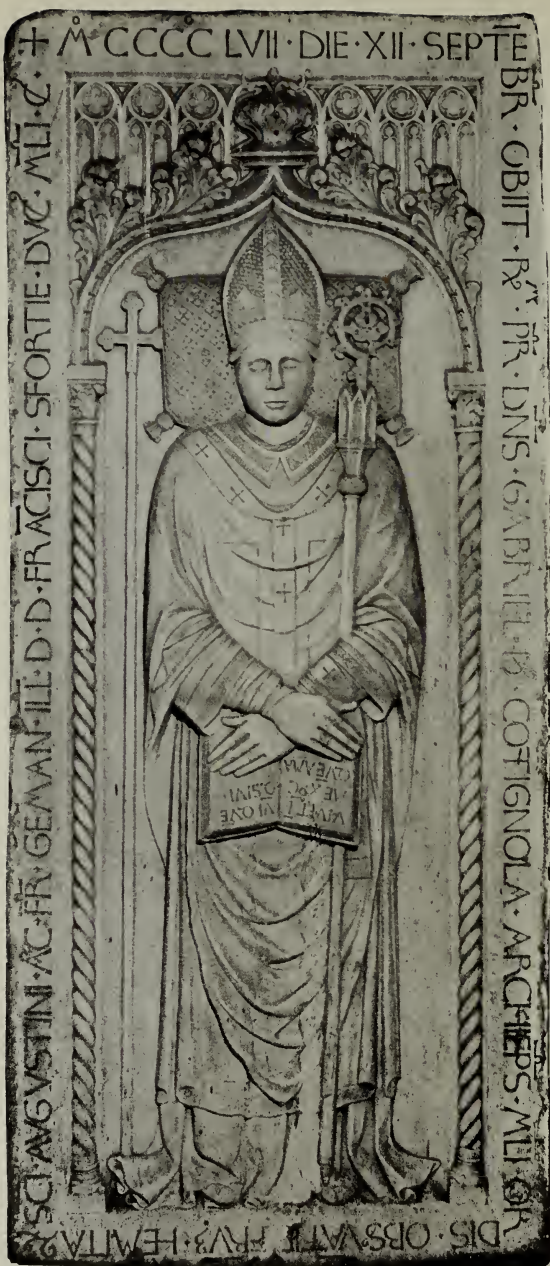 + M CCCC LVII · DIE · XII · SEPTE
BR · OBIIT · R · PR · DNS · GABRIEL · COTIGNOLA · ARCHIEPS · MLI · OR
DIS · OBSVATIE · FRV3 · HEMITA
SCI · AVGVSTINI · AC · FR · GEMAN · ILL · D · D · FRACISCI · SFORTIE · DVC · MLI · C ·